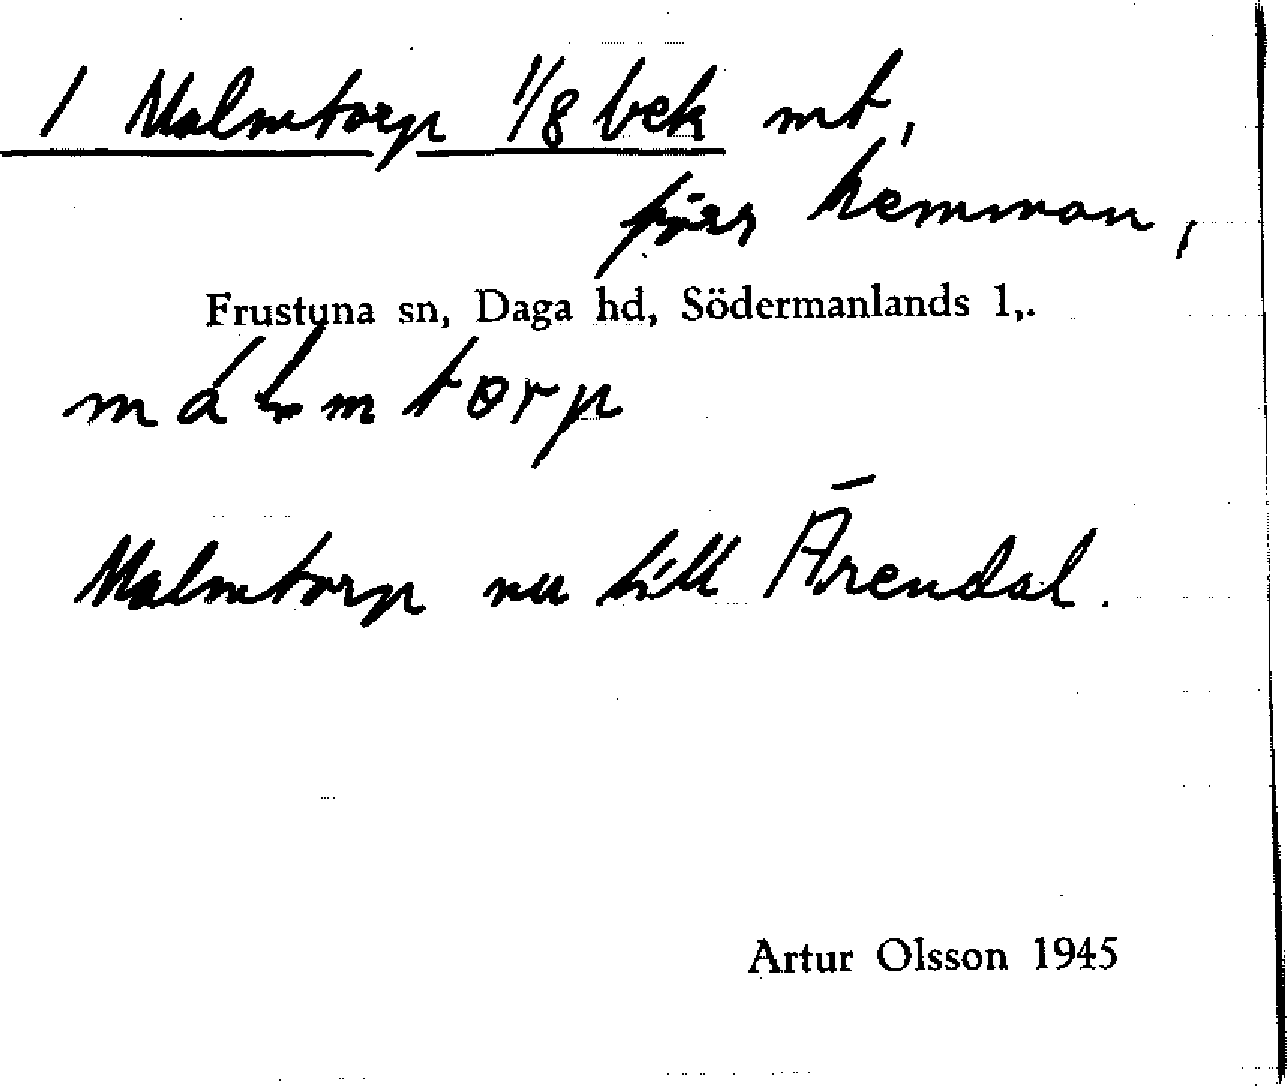 1 Malmtorp 1/8 bek mt,
förr hemman,
Frustuna sn, Daga hd, Södermanlands l,.
málmtorp
Malmtorp nu till Ārendal.
Artur Olsson 1945